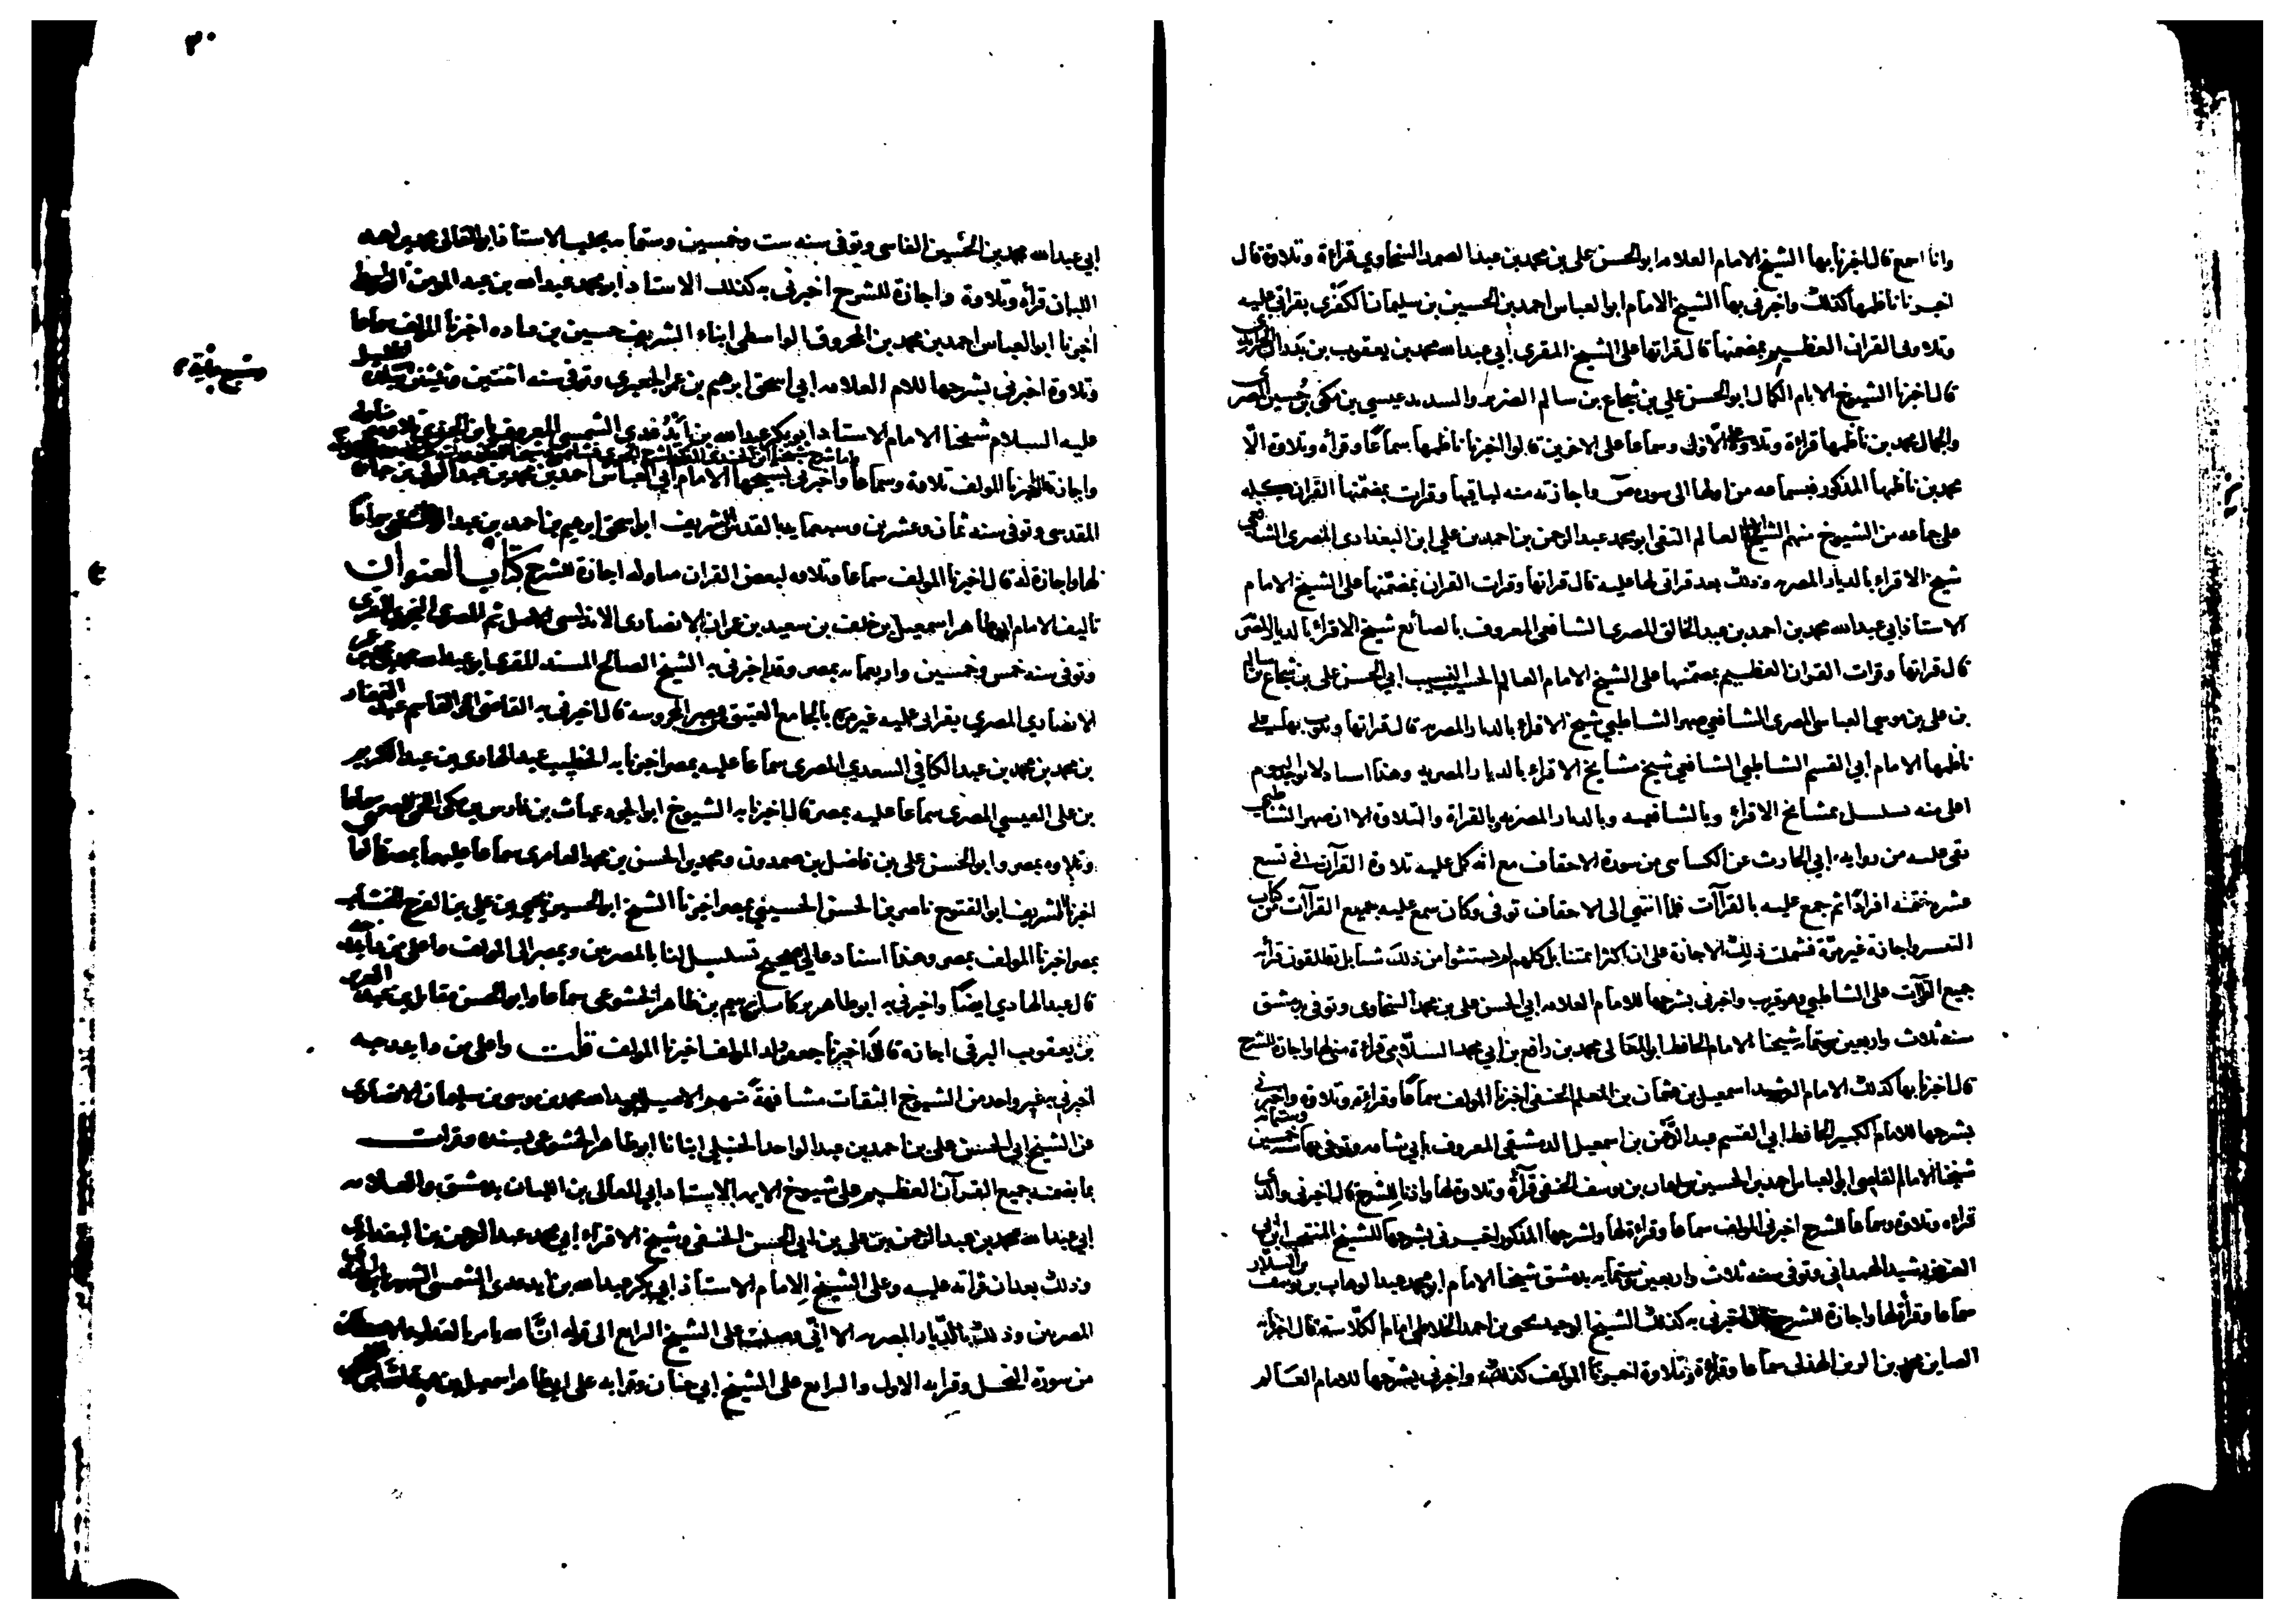 وانا اسمع قال اخبرنا بها الشيخ الامام العلامه ابو الحسن علي بن محمد بن عبد الصمد السخاوي قراءة وتلاوة قال
اخبرنا ناظمها كذلك واخبرني بها الشيخ الامام ابو العباس احمد بن الحسين بن سليمان الكفري بقراتي عليه
وتلاوتي القران العظيم بمضمنها قال قراتها على الشيخ المقري ابي عبد الله محمد بن يعقوب بن بدران الجرايدي
قال اخبرنا الشيوخ الامام الكمال ابو الحسن علي بن شجاع بن سالم الضرير والسديد عيسى بن مكي بن حسين المصري
والجمال محمد بن ناظمها قراءة وتلاوة على الاول وسماعا على الاخرين قالوا اخبرنا ناظمها سماعا وقراه وتلاوة الا
محمد بن ناظمها المذكور فبسماعه من اولها الى سوره ص واجازته منه لباقيها وقرات بمضمنها القران كله
على جماعه من الشيوخ منهم الشيخ الامام العالم التقي ابو محمد عبد الرحمن بن احمد بن علي ابن البغدادي المصري الشافعي
شيخ الاقراء بالديار المصريه وذلك بعد قراتي لها عليه قال قراتها وقرات القران بمضمنها على الشيخ الامام
الاستاذ ابي عبد الله محمد بن احمد بن عبد الخالق المصري الشافعي المعروف بالصائغ شيخ الاقراء بالديار المصريه
قال قراتها وقرات القران العظيم بمضمنها على الشيخ الامام العالم الحسيب النسيب ابي الحسن علي بن شجاع بن سالم
بن علي بن موسى العباسي المصري الشافعي صهر الشاطبي شيخ الاقراء بالديار المصريه قال قراتها وتلوت بها على
ناظمها الامام ابي القسم الشاطبي الشافعي شيخ مشايخ الاقراء بالديار المصريه وهذا اسناد لا يوجد اليوم
اعلى منه تسلسل بمشايخ الاقراء وبالشافعيه وبالديار المصريه وبالقراة والتلاوة الا ان صهر الشاطبي
بقي عليه من روايه ابي الحارث عن الكسائي من سورة الاحقاف مع انه كمل عليه تلاوة القرآن في تسع
عشرة ختمة افرادا ثم جمع عليه بالقرآات فلما انتهى الى الاحقاف توفي وكان سمع عليه جميع القرآات من كتاب
التيسير واجازه غير مرة فشملت ذلك الاجازة على ان اكثر ائمتنا بل كلهم لم يستثنوا من ذلك شيا بل يطلقون قراته
جميع القرآات على الشاطبي وهو قريب واخبرني بشرحها للامام العلامه ابي الحسن علي بن محمد السخاوي وتوفي بدمشق
سنه ثلاث واربعين وستمايه شيخنا الامام الحافظ ابو المعالي محمد بن رافع بن ابي محمد السلامي قراءة مني لها واجازة للشرح
قال اخبرنا بها كذلك الامام الرشيد اسمعيل بن عثمان بن المعلم الحنفي اخبرنا المولف سماعا وقراءة وتلاوة واخبرني
بشرحها للامام الكبير الحافظ ابي القسم عبد الرحمن بن اسمعيل الدمشقي المعروف بابي شامه وتوفي بها سنه خمس وستمايه
شيخنا الامام القاضي ابو العباس احمد بن الحسين بن سليمان بن يوسف الحنفي قرآة وتلاوة لها واذنا للشرح قال اخبرني والدي
قراه وتلاوة وسماعا للشرح اخبرني المولف سماعا وقراءة لها ولشرحها المذكور اخبرني بشرحها للشيخ المنتجب ابن ابي
العز بن رشيد الهمداني وتوفي سنه ثلاث واربعين وستمايه بدمشق شيخنا الامام ابو محمد عبد الوهاب بن يوسف بن السلار
سماعا وقراة لها واجازة للشرح قال اخبرني به كذلك الشيخ ابو حيد يحيى بن احمد الخلاطي امام الكلاسه قال اخبرنا به
الصاين محمد بن الزين الهذلي سماعا وقراءة وتلاوة اخبرنا المولف كذلك واخبرني بشرحها للامام العالم
٣٠
ابي عبد الله محمد بن الحسين الفاسي وتوفي سنه ست وخمسين وستمايه بحلب الاستاذ ابو المعالي محمد بن احمد
اللبان قراة وتلاوة واجازة للشرح اخبرني به كذلك الاستاذ ابو محمد عبد الله بن عبد المومن الواسطي
اخبرنا ابو العباس احمد بن محمد بن المحروق الواسطي انباء الشريف حسين بن قتاده اخبرنا المولف سماعا
وتلاوة اخبرني بشرحها للامام العلامه ابي اسحق ابرهيم بن عمر الجعبري وتوفي سنه اثنتين وثلثين وسبعمايه
عليه السلام شيخنا الامام الاستاذ ابو بكر عبد الله بن ايدغدي الشمسي المعروف بابن الجندي
واجازة قال اخبرنا المولف تلاوة وسماعا واخبرني بشرحها الامام ابي العباس احمد بن محمد بن عبد الولي بن جبارة
المقدسي وتوفي سنه ثمان وعشرين وسبعمايه بالقدس الشريف ابو اسحق ابرهيم بن احمد بن عبد الواحد سماعا
لها واجازة له قال اخبرنا المولف سماعا وتلاوه لبعض القران مناوله اجازة للشرح كتاب العنوان
تاليف الامام ابي طاهر اسمعيل بن خلف بن سعيد بن عمران الانصاري الاندلسي الاصل ثم المصري النحوي المقري
وتوفي سنه خمس وخمسين واربعمايه بمصر وقد اخبرني به الشيخ الصالح المسند المقري ابو عبد الله محمد بن محمد بن عمر
الانصاري المصري بقراتي عليه غير مرة بالجامع العتيق بمصر المحروسه قال اخبرني به القاضي ابو القاسم عبد الغفار
بن محمد بن محمد بن عبد الكافي السعدي المصري سماعا عليه بمصر اخبرنا به الخطيب عبد الهادي بن عبد الكريم
بن علي القيسي المصري سماعا عليه بمصر قال اخبرنا به الشيوخ ابو الجود غياث بن فارس بن مكي اللخمي المصري سماعا
وتلاوه بمصر وابو الحسن علي بن فاضل بن صمدون ومحمد بن الحسن بن محمد العامري سماعا عليهما بمصر قالوا
اخبرنا الشريف ابو الفتوح ناصر بن الحسن الحسيني بمصر اخبرنا الشيخ ابو الحسين يحيى بن علي بن الفرج الخشاب
بمصر اخبرنا المولف بمصر وهذا اسناد عال صحيح تسلسل لنا بالمصريين وبمصر الى المولف واعلى من هذا
قال عبد الهادي ايضا واخبرني به ابو طاهر بركات بن ابرهيم بن طاهر الخشوعي سماعا وابو الحسن مقاتل بن عبد العزيز
بن يعقوب البرقي اجازه قالا اخبرنا جعفر ولد المولف اخبرنا المولف قلت واعلى من ذا بدرجه
اخبرني به غير واحد من الشيوخ الثقات مشافهة منهم الاصيل ابو عبد الله محمد بن موسى بن سليمان الانصاري
عن الشيخ ابي الحسن علي بن احمد بن عبد الواحد الحنبلي انبانا ابو طاهر الخشوعي بسنده وقرات
بما تضمنه جميع القرآن العظيم على شيوخ الايمه الاستاذ ابي المعالي بن اللبان بدمشق والعلامه
ابي عبد الله محمد بن عبد الرحمن بن علي بن ابي الحسن الحنفي وشيخ الاقراء ابي محمد عبد الرحمن بن البغدادي
وذلك بعد ان قراته عليه وعلى الشيخ الامام الاستاذ ابي بكر عبد الله بن ايدغدي الشمسي الشهير بابن الجندي
المصريين وذلك بالديار المصريه الا اني وصلت على الشيخ الرابع الى قوله ان الله يامر بالعدل والاحسان
من سورة النحل وقرا به الاول والرابع على الشيخ ابي حيان وقرا به على ابي طاهر اسمعيل بن هبة الله المليجي